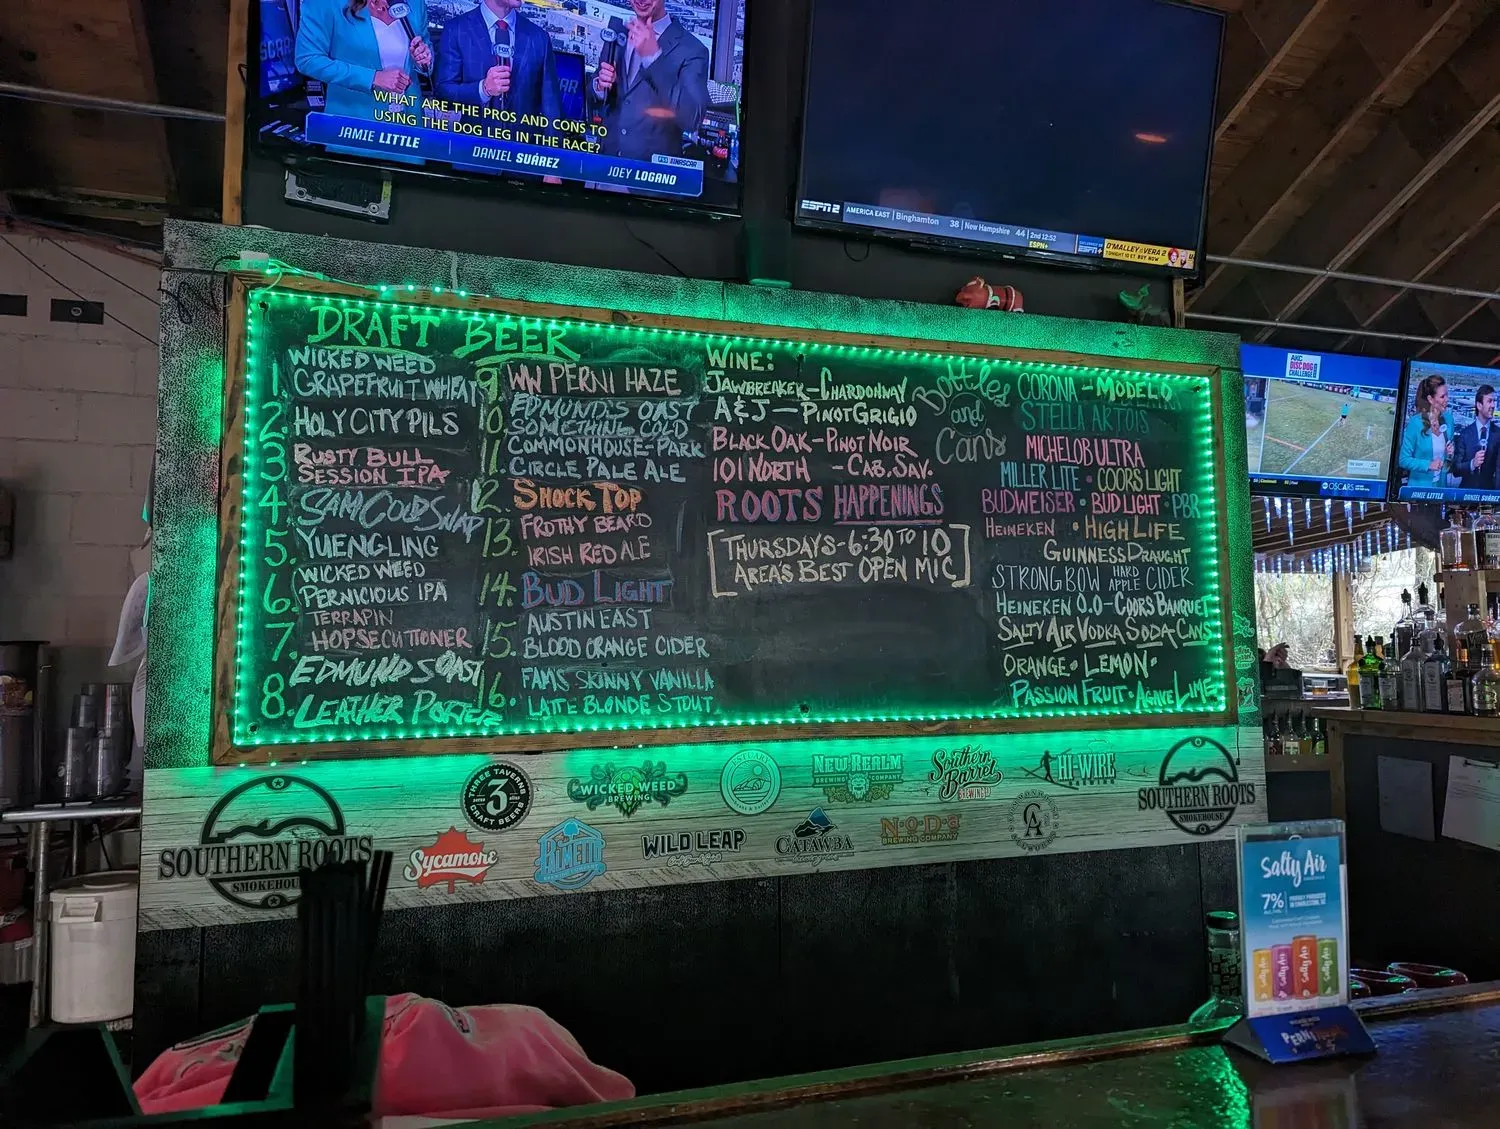 WHAT ARE THE PROS AND CONS TO
USING THE DOG LEG IN THE RACE?
JAMIE LITTLE
DANIEL SUÁREZ
JOEY LOGANO
FS1 NASCAR
ESPN 2
AMERICA EAST | Binghamton 38 | New Hampshire 44 | 2nd 12:52
ESPN+
ESPN+
O'MALLEY VERA 2
TONIGHT 10 ET BUY NOW
DRAFT BEER
1. WICKED WEED
GRAPEFRUIT WHEAT
2. HOLY CITY PILS
3. RUSTY BULL
SESSION IPA
4. SAM COLD SNAP
5. YUENGLING
6. WICKED WEED
PERNICIOUS IPA
7. TERRAPIN
HOPSECUTIONER
8. EDMUNDS OAST
LEATHER PORTER
9 WW PERNI HAZE
10. EDMUNDS OAST
SOMETHING COLD
11. COMMONHOUSE-PARK
CIRCLE PALE ALE
12. SHOCK TOP
13. FROTHY BEARD
IRISH RED ALE
14. BUD LIGHT
15. AUSTIN EAST
BLOOD ORANGE CIDER
16. FAM'S SKINNY VANILLA
LATTE BLONDE STOUT
WINE:
JAWBREAKER-CHARDONNAY
A & J - PINOT GRIGIO
BLACK OAK-PINOT NOIR
101 NORTH - CAB. SAV.
ROOTS HAPPENINGS
[THURSDAYS-6:30 TO 10
AREA'S BEST OPEN MIC]
Bottles
and
Cans
CORONA - MODELO
STELLA ARTOIS
MICHELOB ULTRA
MILLER LITE • COORS LIGHT
BUDWEISER • BUD LIGHT • PBR
HEINEKEN • HIGH LIFE
GUINNESS DRAUGHT
STRONGBOW HARD APPLE CIDER
HEINEKEN 0.0-COORS BANQUET
SALTY AIR VODKA SODA CANS
ORANGE • LEMON •
PASSION FRUIT • AGAVE LIME
AKC
DISC DOG
CHALLENGE
OSCARS
JAMIE LITTLE
DANIEL SUÁREZ
SOUTHERN ROOTS
SMOKEHOUSE
THREE TAVERNS
3
CRAFT BEERS
WICKED WEED
BREWING
NEW REALM
BREWING COMPANY
Southern
Barrel
BREWING CO
HI-WIRE
BREWING
SOUTHERN ROOTS
SMOKEHOUSE
Sycamore
PALMETTO
WILD LEAP
CATAWBA
N·O·D·A
BREWING COMPANY
CA
Salty Air
7%
Salty Air
Salty Air
Salty Air
Salty Air